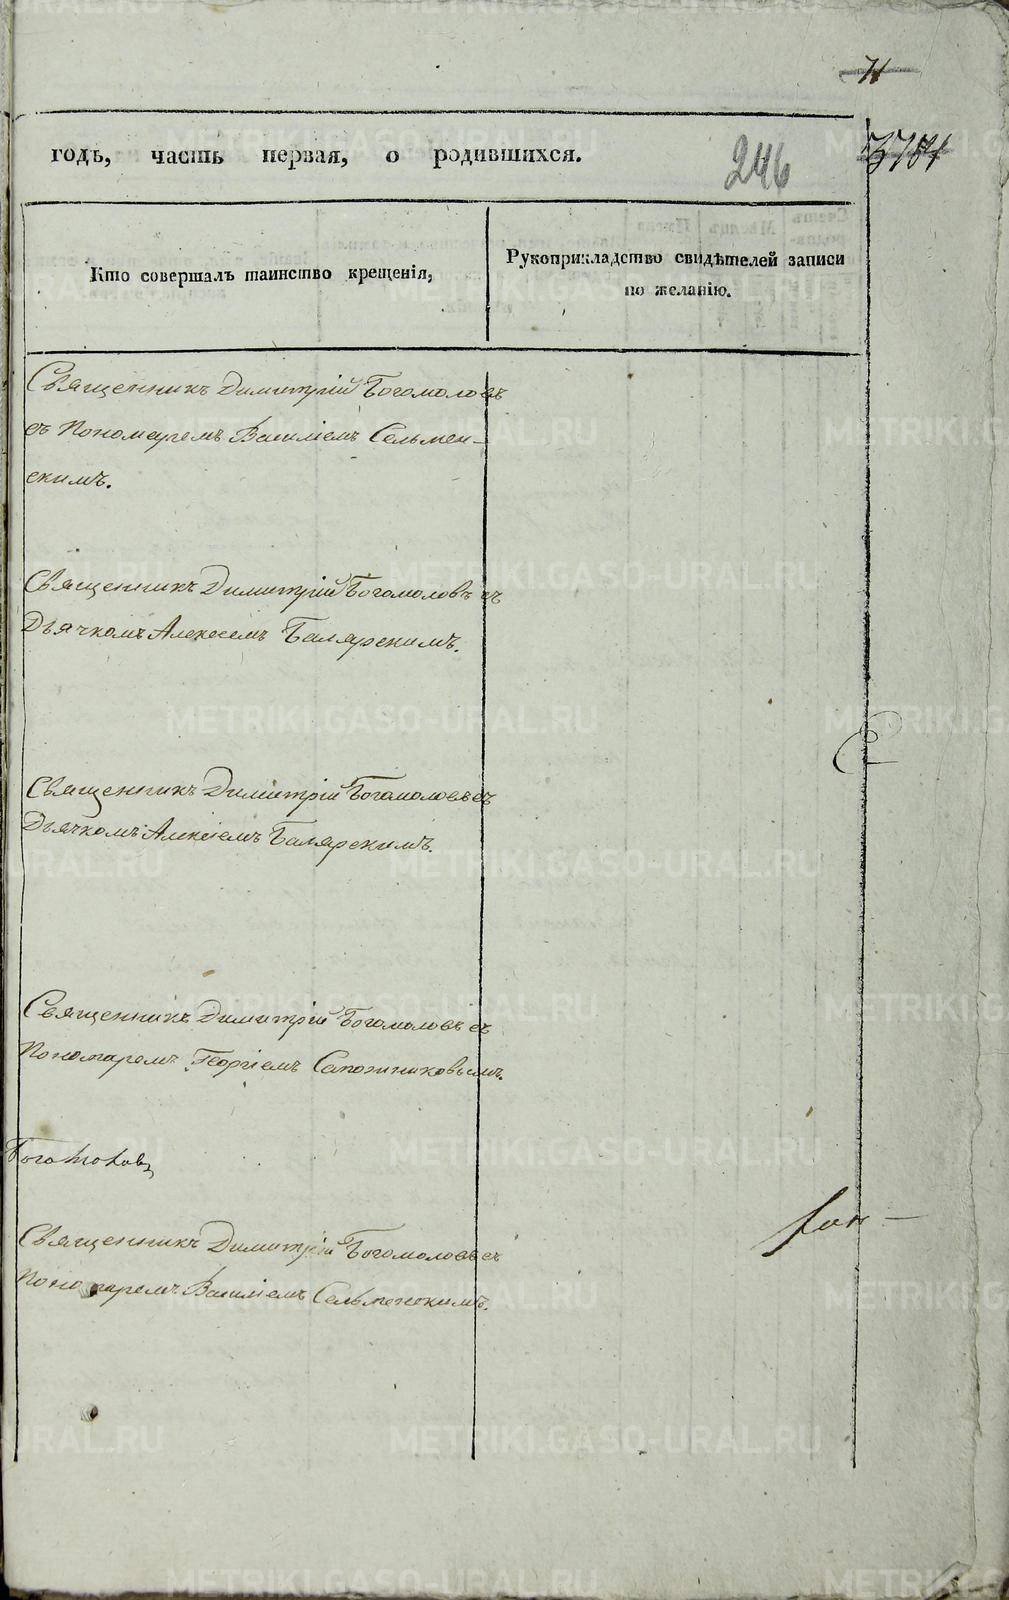 годъ, часть первая, о родившихся.
246
Кто совершалъ таинство крещенія,
Рукоприкладство свидѣтелей записи
по желанію.
Священникъ Димитрій Богомоловъ
съ Пономаремъ Василіемъ Сельмен-
скимъ.
Священникъ Димитрій Богомоловъ съ
Дьячкомъ Алексеемъ Балярскимъ.
Священникъ Димитрій Богомоловъ съ
Дьячкомъ Алексіемъ Балярскимъ.
Священникъ Димитрій Богомоловъ съ
Пономаремъ Георгіемъ Сапожниковымъ.
Священникъ Димитрій Богомоловъ съ
Пономаремъ Василіемъ Сельменскимъ.
METRIKI.GASO-URAL.RU